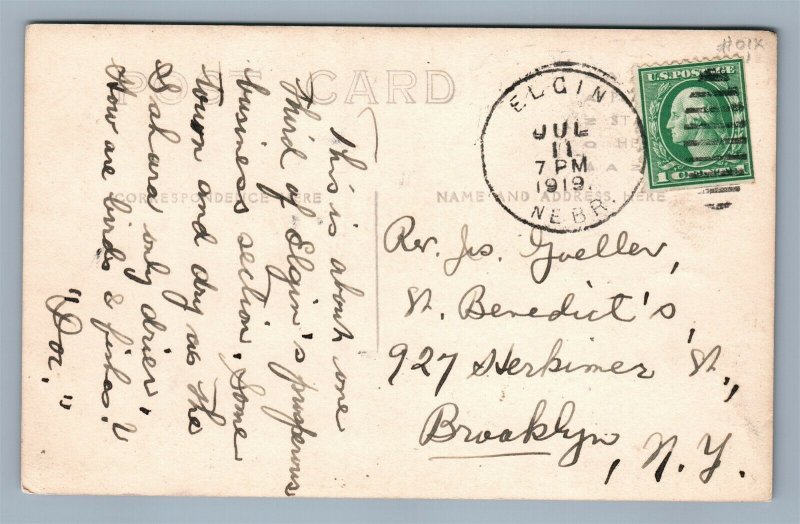 POST CARD
#01X
U.S. POSTAGE
1 CENT
ELGIN
JUL
11
7 PM
1919.
NEBR.
CORRESPONDENCE HERE
NAME AND ADDRESS HERE
This is about one
third of Elgin's prosperous
business section. Some
town and dry as the
Sahara only drier.
How are birds & fishes?
"Doc."
Rev. Jos. Goeller,
St. Benedict's,
927 Herkimer St.,
Brooklyn, N.Y.